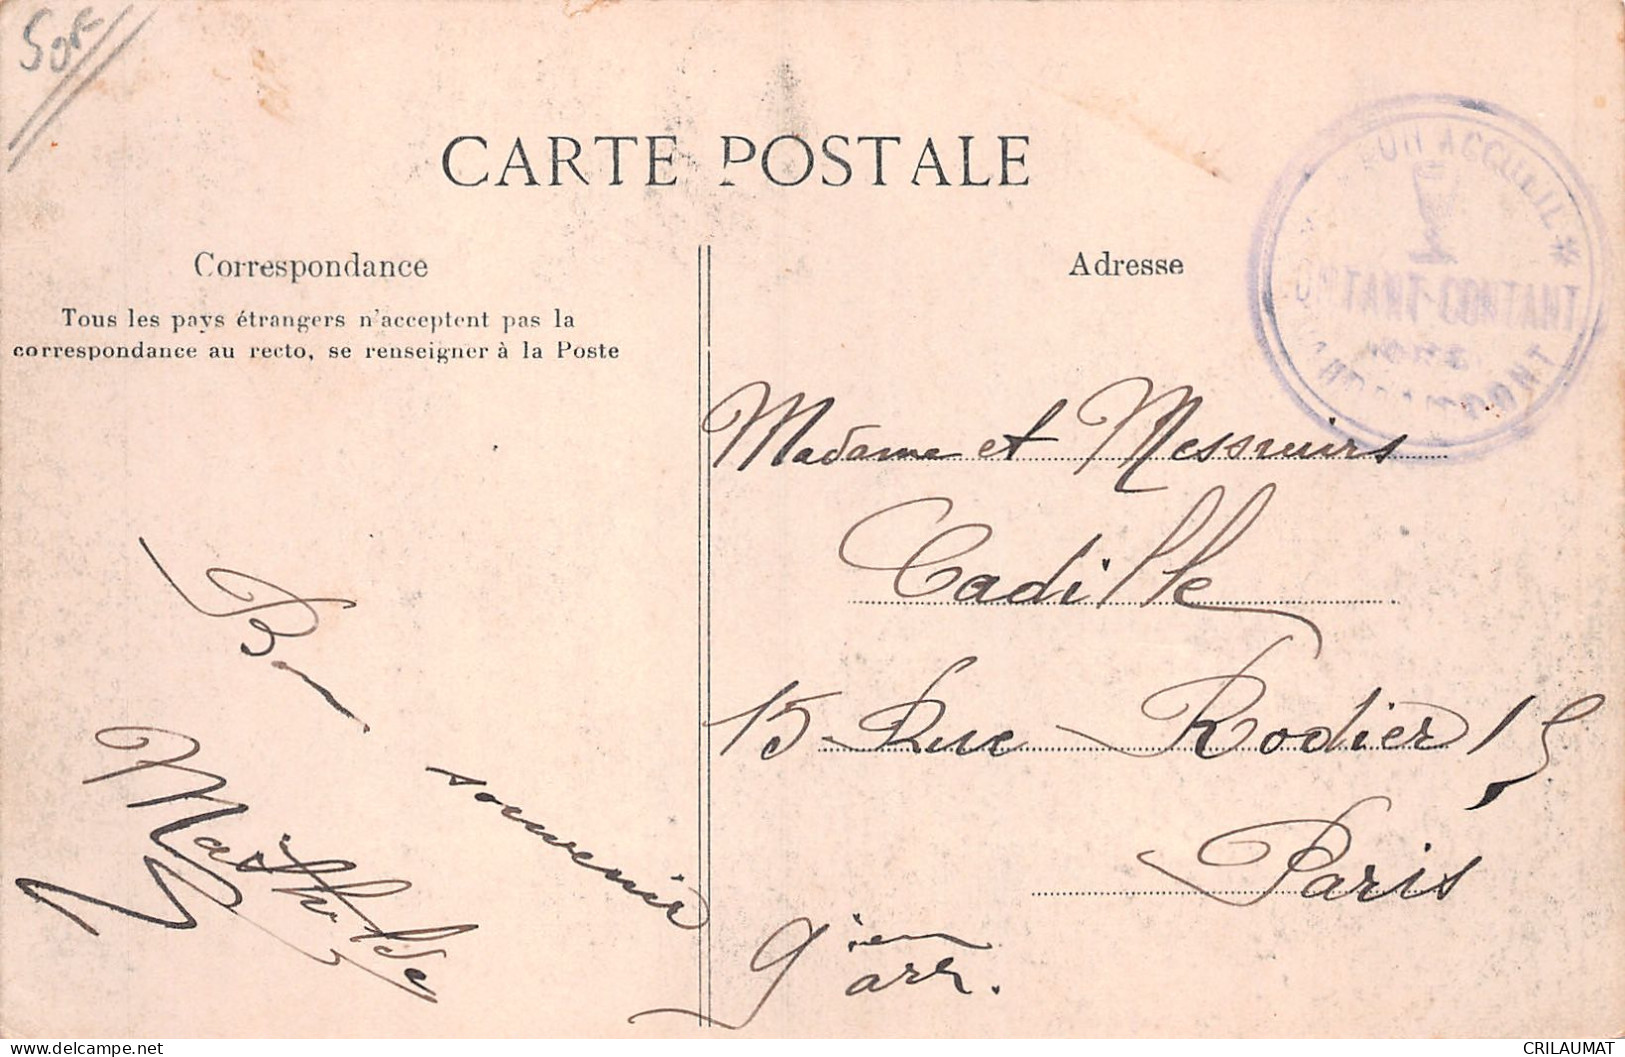 50F
CARTE POSTALE
Correspondance
Tous les pays étrangers n'acceptent pas la
correspondance au recto, se renseigner à la Poste
Bon
souvenir
Mathilde
Adresse
ACCUEIL *
CONTANT
Madame et Messieurs
Cadille
15 Rue Rodier 15
Paris
9ien arr.
delcampe.net
CRILAUMAT